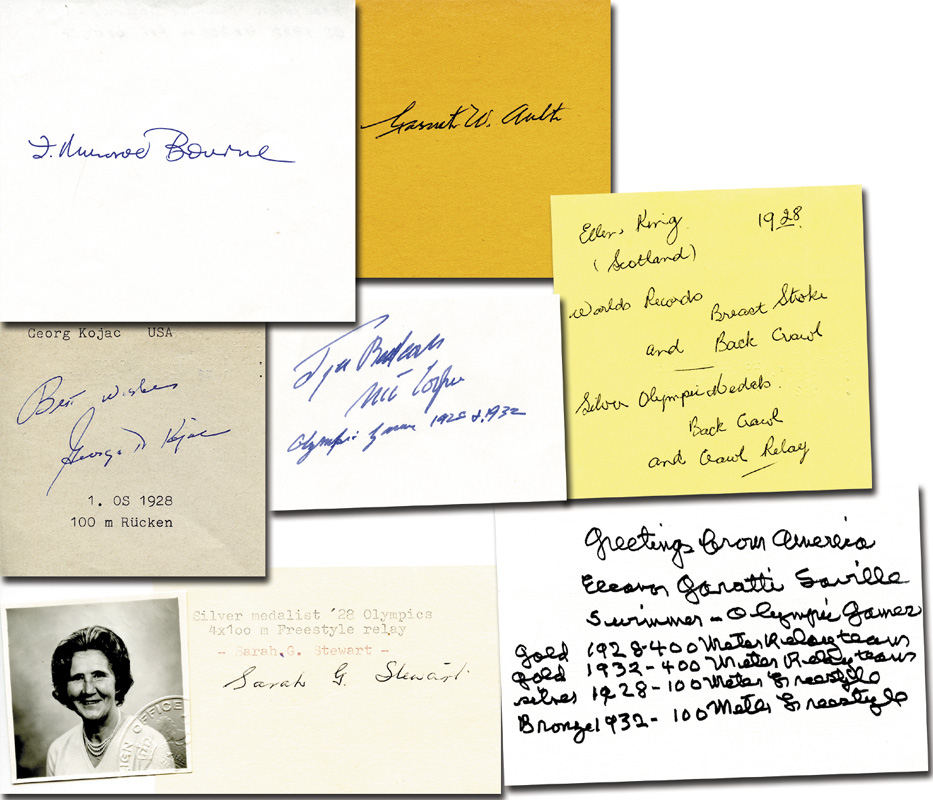 F. Munroe Bourne
Garnet W. Ault
Ellen King 1928
(Scotland)
Worlds Records
Breast Stroke
and Back Crawl
Silver Olympic Medals
Back Crawl
and Crawl Relay
Georg Kojac USA
Best wishes
George D Kojac
1. OS 1928
100 m Rücken
Badcock
née Cooper
Olympic Games 1928 & 1932
Silver medalist '28 Olympics
4x100 m Freestyle relay
- Sarah.G. Stewart -
Sarah G. Stewart
IGN OFFICE
Greetings from America
Eleanor Garatti Saville
Swimmer - Olympic Games
gold 1928-400 Meter Relay team
gold 1932-400 Meter Relay team
silver 1928-100 Meter Freestyle
Bronze 1932-100 Meter Freestyle